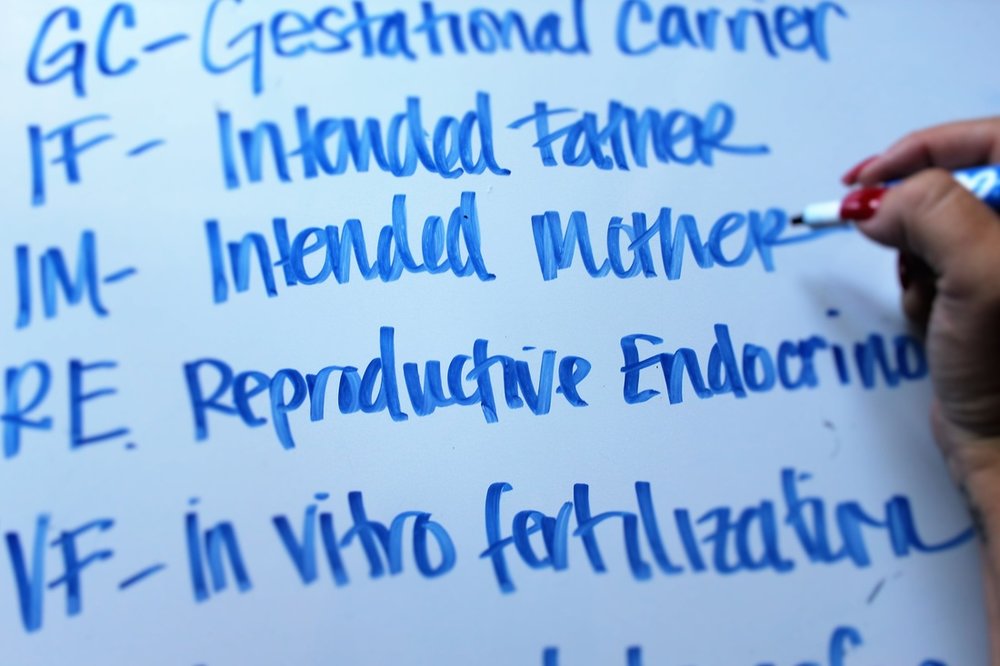 GC- Gestational Carrier
IF - Intended Father
IM- Intended Mother
RE. Reproductive Endocrino
VF- in vitro fertilization